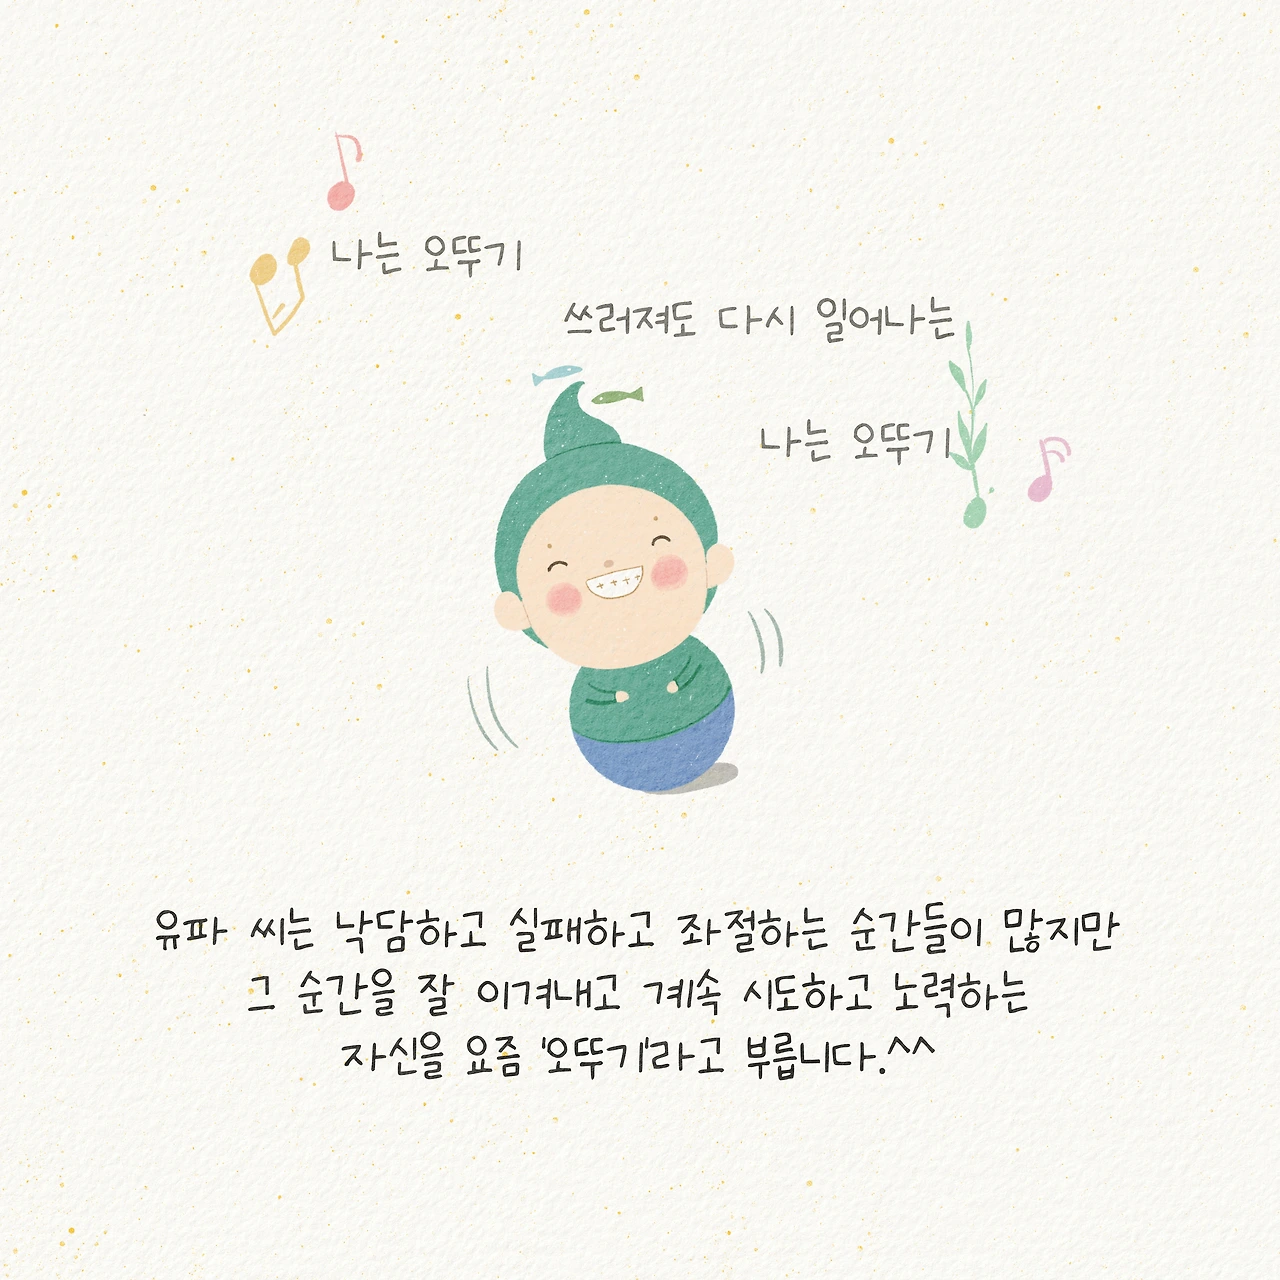 나는 오뚜기
쓰러져도 다시 일어나는
나는 오뚜기
유파 씨는 낙담하고 실패하고 좌절하는 순간들이 많지만
그 순간을 잘 이겨내고 계속 시도하고 노력하는
자신을 요즘 '오뚜기'라고 부릅니다.^^